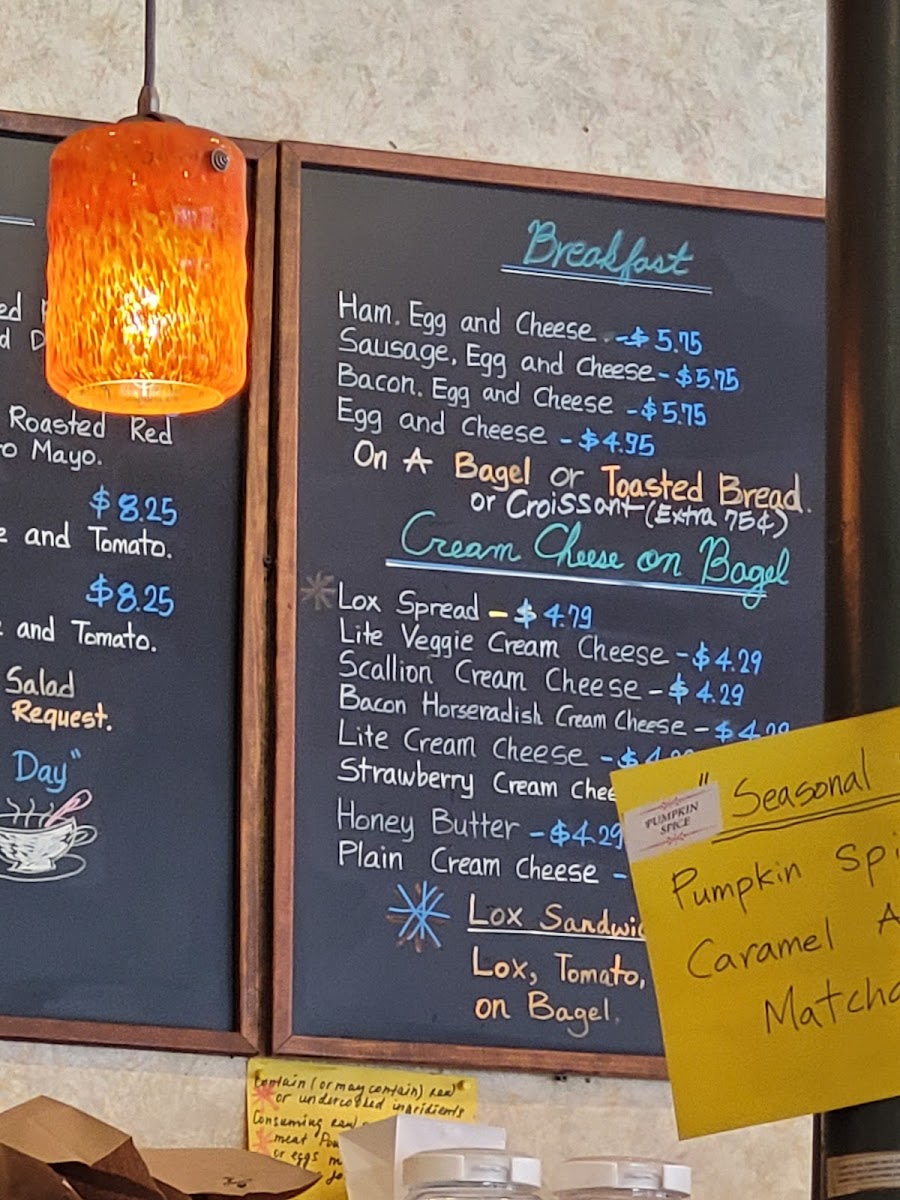 Roasted Red
Mayo.
$8.25
and Tomato.
$8.25
and Tomato.
Salad
Request.
Day"
Breakfast
Ham. Egg and Cheese --$5.75
Sausage, Egg and Cheese-$5.75
Bacon. Egg and Cheese -$5.75
Egg and Cheese -$4.95
On A Bagel or Toasted Bread.
or Croissant (Extra 75¢)
Cream Cheese on Bagel
Lox Spread - $4.79
Lite Veggie Cream Cheese -$4.29
Scallion Cream Cheese - $4.29
Bacon Horseradish Cream Cheese - $4.29
Lite Cream Cheese -$4
Strawberry Cream
Honey Butter -$4.29
Plain Cream Cheese -
Lox
Lox, Tomato,
on Bagel.
" Seasonal
PUMPKIN
SPICE
Pumpkin
Caramel
Contain (or may contain) raw
or undercooked
Consuming raw
meat
or eggs